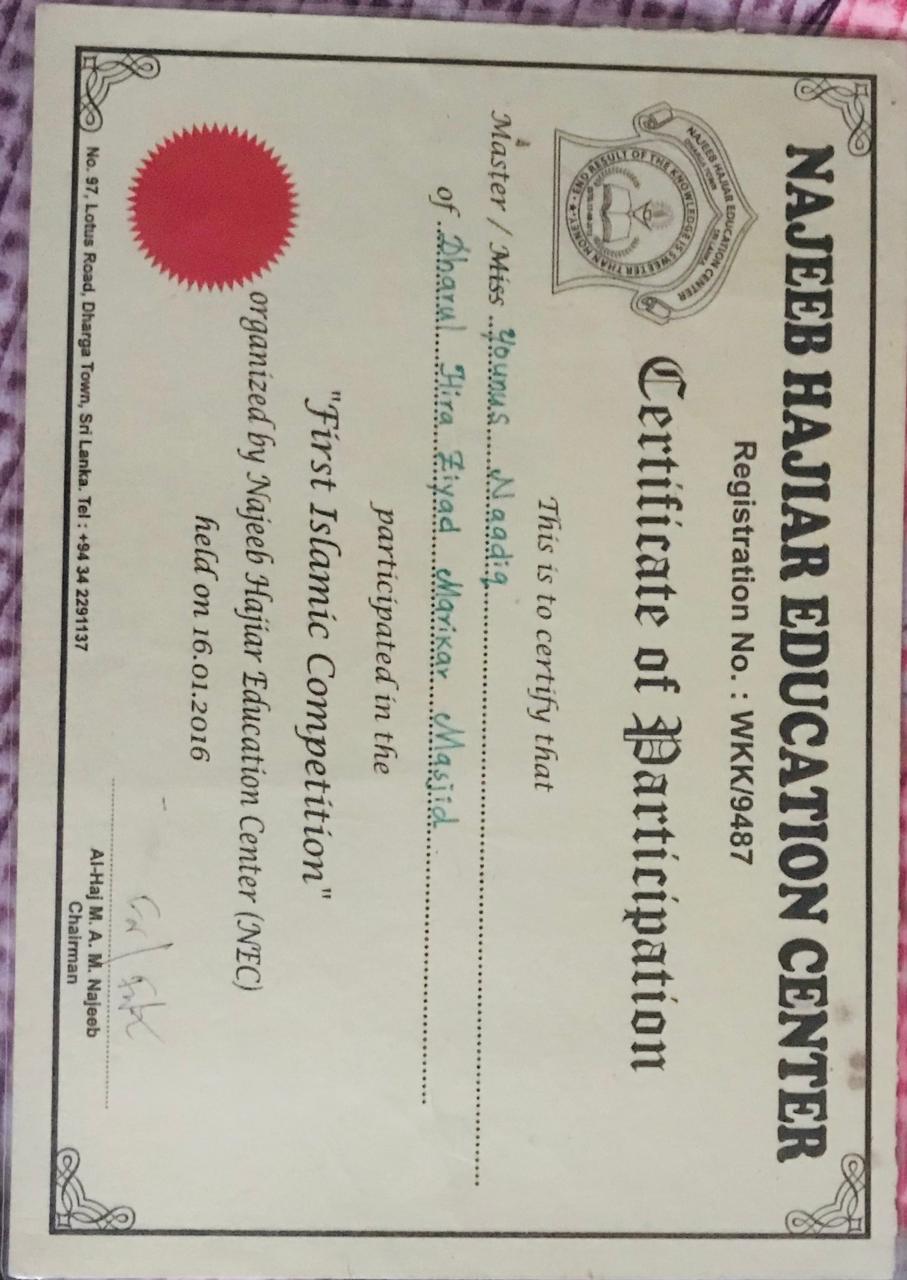 NAJEEB HAJIAR EDUCATION CENTER
Registration No. : WKK/9487
NAJEEB HAJIAR EDUCATION CENTER
DHARGA TOWN SRI LANKA
END RESULT OF THE KNOWLEDGE IS SWEETER THAN HONEY
Certificate of Participation
This is to certify that
Master / Miss Younus Naadiq
of Dharul Hira Ziyad Marikar Masjid
participated in the
"First Islamic Competition"
organized by Najeeb Hajiar Education Center (NEC)
held on 16.01.2016
Al-Haj M. A. M. Najeeb
Chairman
No. 97, Lotus Road, Dharga Town, Sri Lanka. Tel : +94 34 2291137